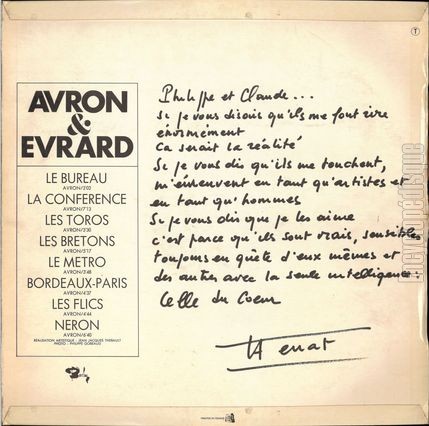 T
AVRON
&
EVRARD
LE BUREAU
AVRON/3'02
LA CONFERENCE
AVRON/7'13
LES TOROS
AVRON/3'30
LES BRETONS
AVRON/5'17
LE METRO
AVRON/3'48
BORDEAUX-PARIS
AVRON/4'37
LES FLICS
AVRON/4'44
NERON
AVRON/6'40
REALISATION ARTISTIQUE - JEAN JACQUES THEBAULT
PHOTO : PHILIPPE GORBEAUD
Philippe et Claude...
Si je vous disais qu'ils me font rire
énormément
Ca serait la réalité
Si je vous dis qu'ils me touchent,
m'émeuvent en tant qu'artistes et
en tant qu'hommes
Si je vous dis que je les aime
c'est parce qu'ils sont vrais, sensibles
toujours en quête d'eux mêmes et
des autres avec la seule intelligence :
Celle du Coeur
Barclay
encyclopédisque